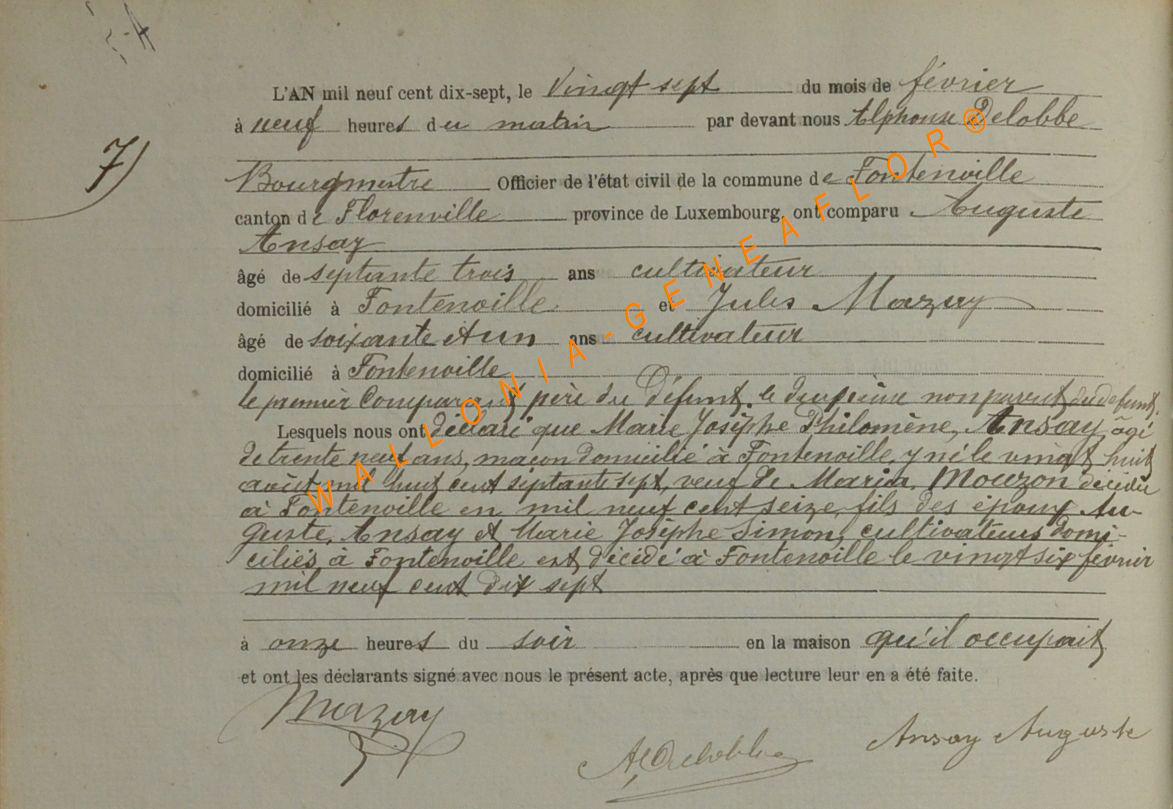 7)
L'AN mil neuf cent dix-sept, le Vingt sept du mois de février
à neuf heures du matin par devant nous Alphonse Delobbe
Bourgmestre Officier de l'état civil de la commune de Fontenoille
canton de Florenville province de Luxembourg, ont comparu Auguste
Ansay
âgé de septante trois ans cultivateur
domicilié à Fontenoille et Jules Mazay
âgé de soixante et un ans cultivateur
domicilié à Fontenoille
le premier Comparant père du Défunt, le deuxième non parent du défunt.
Lesquels nous ont déclaré que Marie Josèphe Philomène, Ansay, âgé
de trente neuf ans, maçon domicilié à Fontenoille, y né le vingt huit
août mil huit cent septante sept, veuf de Maria, Mouzon décédée
à Fontenoille en mil neuf cent seize, fils des époux Au-
guste, Ansay et Marie Josèphe Simon, cultivateurs domi-
ciliés à Fontenoille est décédé à Fontenoille le vingt six février
mil neuf cent dix sept
à onze heures du soir en la maison qu'il occupait
et ont les déclarants signé avec nous le présent acte, après que lecture leur en a été faite.
Mazay
A. Delobbe
Ansay Auguste
WALLONIA-GENEAFLOR®